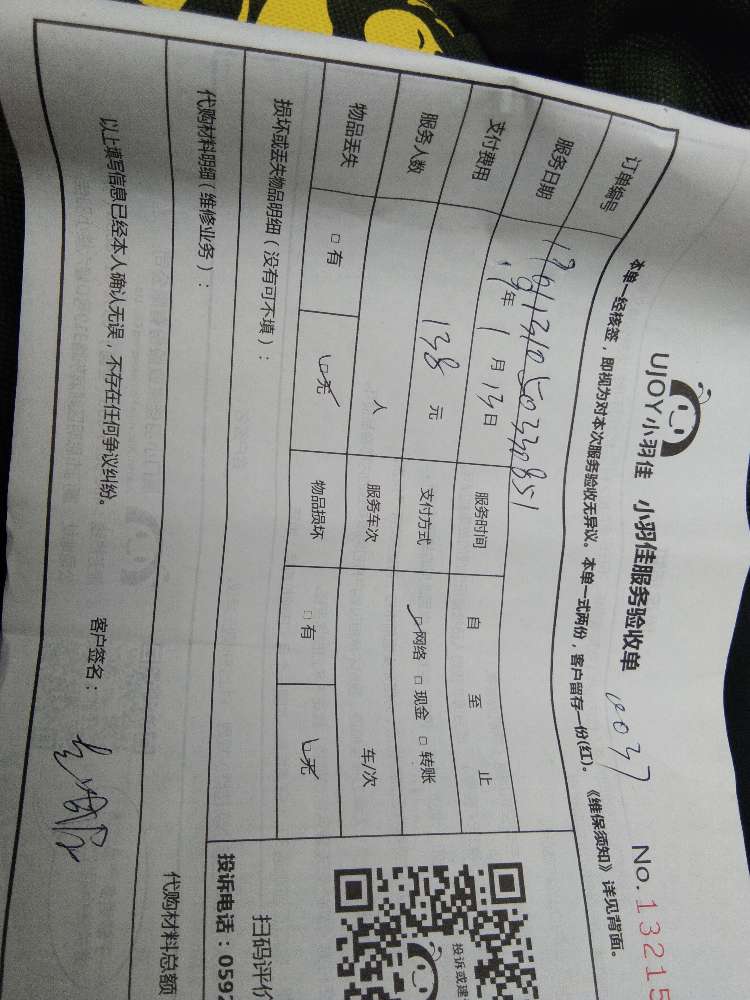 UJOY小羽佳 小羽佳服务验收单 No.13215
本单一经核签，即视为对本次服务验收无异议。本单一式两份，客户留存一份(红)。《维保须知》详见背面。
订单编号
服务日期 19年 1月 13日 服务时间 自 至 止
支付费用 138 元 支付方式 □网络 □现金 □转账
服务人数 人 服务车次 车/次
物品丢失 □有 □无 物品损坏 □有 □无
损坏或丢失物品明细（没有可不填）：
代购材料明细（维修业务）：
以上填写信息已经本人确认无误，不存在任何争议纠纷。 客户签名：
投诉或建
扫码评价
投诉电话：0592
代购材料总额